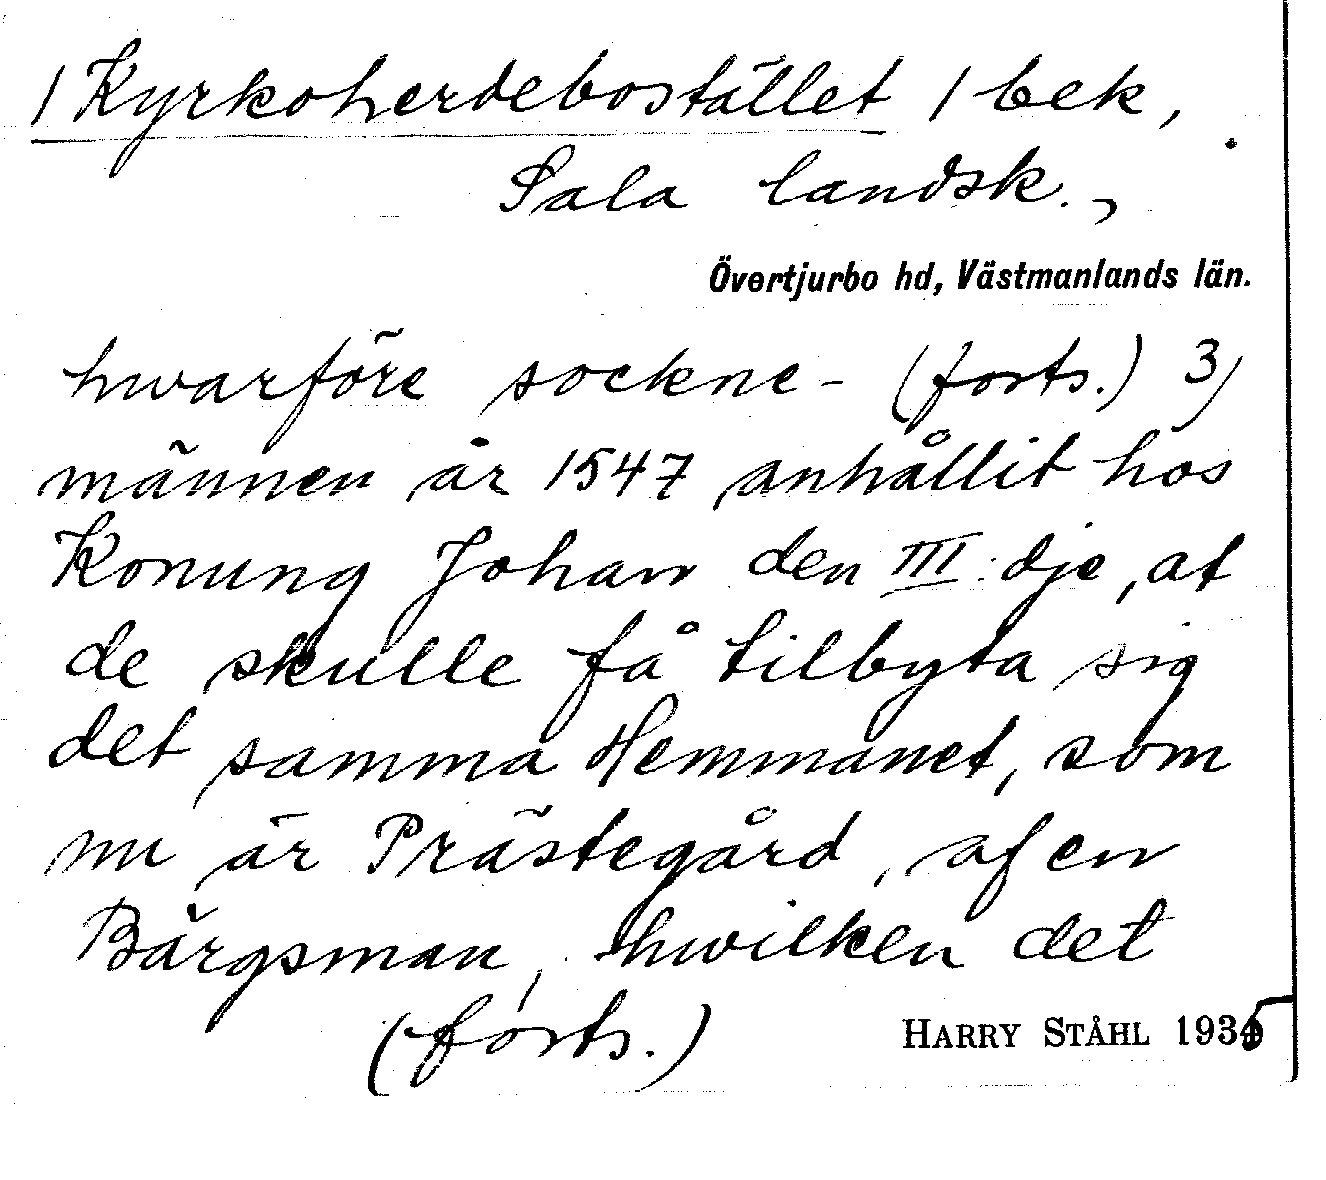 / Kyrkoherdebostället / bek,
Sala landsk.,
Övertjurbo hd, Västmanlands län.
hwarföre sockne- (forts.) 3)
männen år 1547 anhållit hos
Konung Johan den III:dje, at
de skulle få tilbyta sig
det samma Hemmanet, som
nu är Prästegård, af en
Bärgsman, hwilken det
(forts.)
HARRY STÅHL 1935